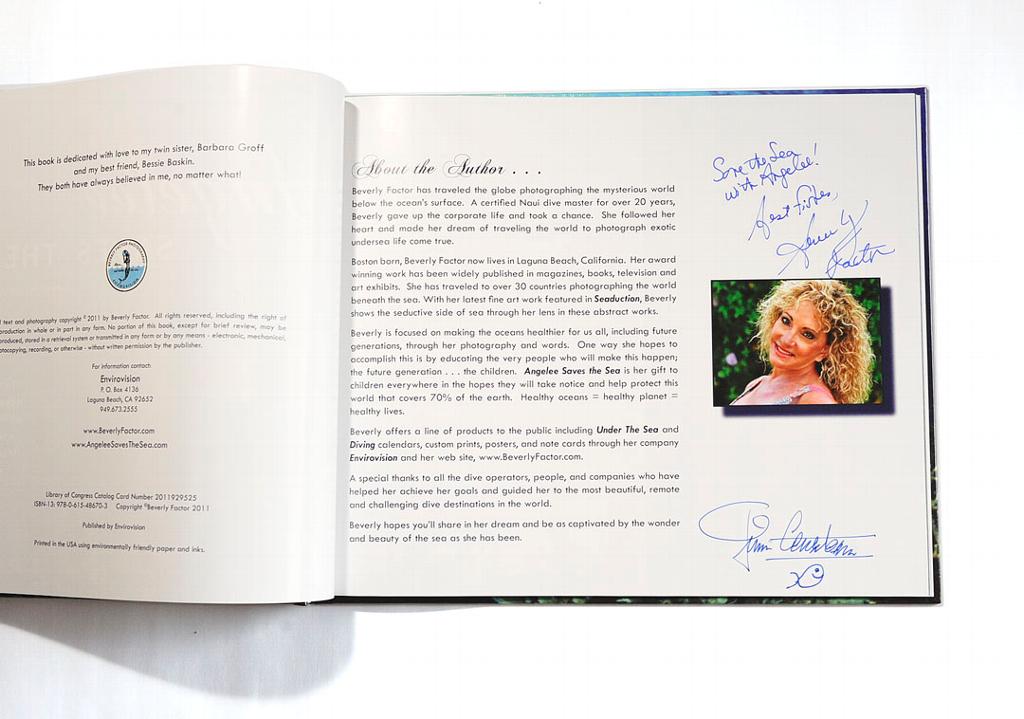 This book is dedicated with love to my twin sister, Barbara Groff
and my best friend, Bessie Baskin.
They both have always believed in me, no matter what!
BEVERLY FACTOR PHOTOGRAPHY
ENVIROVISION
text and photography copyright ©2011 by Beverly Factor. All rights reserved, including the right of
production in whole or in part in any form. No portion of this book, except for brief review, may be
produced, stored in a retrieval system or transmitted in any form or by any means - electronic, mechanical,
otocopying, recording, or otherwise - without written permission by the publisher.
For information contact:
Envirovision
P. O. Box 4136
Laguna Beach, CA 92652
949.673.2555
www.BeverlyFactor.com
www.AngeleeSavesTheSea.com
Library of Congress Catalog Card Number 2011929525
ISBN-13: 978-0-615-48670-3 Copyright ©Beverly Factor 2011
Published by Envirovision
Printed in the USA using environmentally friendly paper and inks.
About the Author . . .
Beverly Factor has traveled the globe photographing the mysterious world
below the ocean's surface. A certified Naui dive master for over 20 years,
Beverly gave up the corporate life and took a chance. She followed her
heart and made her dream of traveling the world to photograph exotic
undersea life come true.
Boston born, Beverly Factor now lives in Laguna Beach, California. Her award
winning work has been widely published in magazines, books, television and
art exhibits. She has traveled to over 30 countries photographing the world
beneath the sea. With her latest fine art work featured in Seaduction, Beverly
shows the seductive side of sea through her lens in these abstract works.
Beverly is focused on making the oceans healthier for us all, including future
generations, through her photography and words. One way she hopes to
accomplish this is by educating the very people who will make this happen;
the future generation . . . the children. Angelee Saves the Sea is her gift to
children everywhere in the hopes they will take notice and help protect this
world that covers 70% of the earth. Healthy oceans = healthy planet =
healthy lives.
Beverly offers a line of products to the public including Under The Sea and
Diving calendars, custom prints, posters, and note cards through her company
Envirovision and her web site, www.BeverlyFactor.com.
A special thanks to all the dive operators, people, and companies who have
helped her achieve her goals and guided her to the most beautiful, remote
and challenging dive destinations in the world.
Beverly hopes you'll share in her dream and be as captivated by the wonder
and beauty of the sea as she has been.
Save the Sea
with Angelee!
Best Fishes,
Beverly
Factor